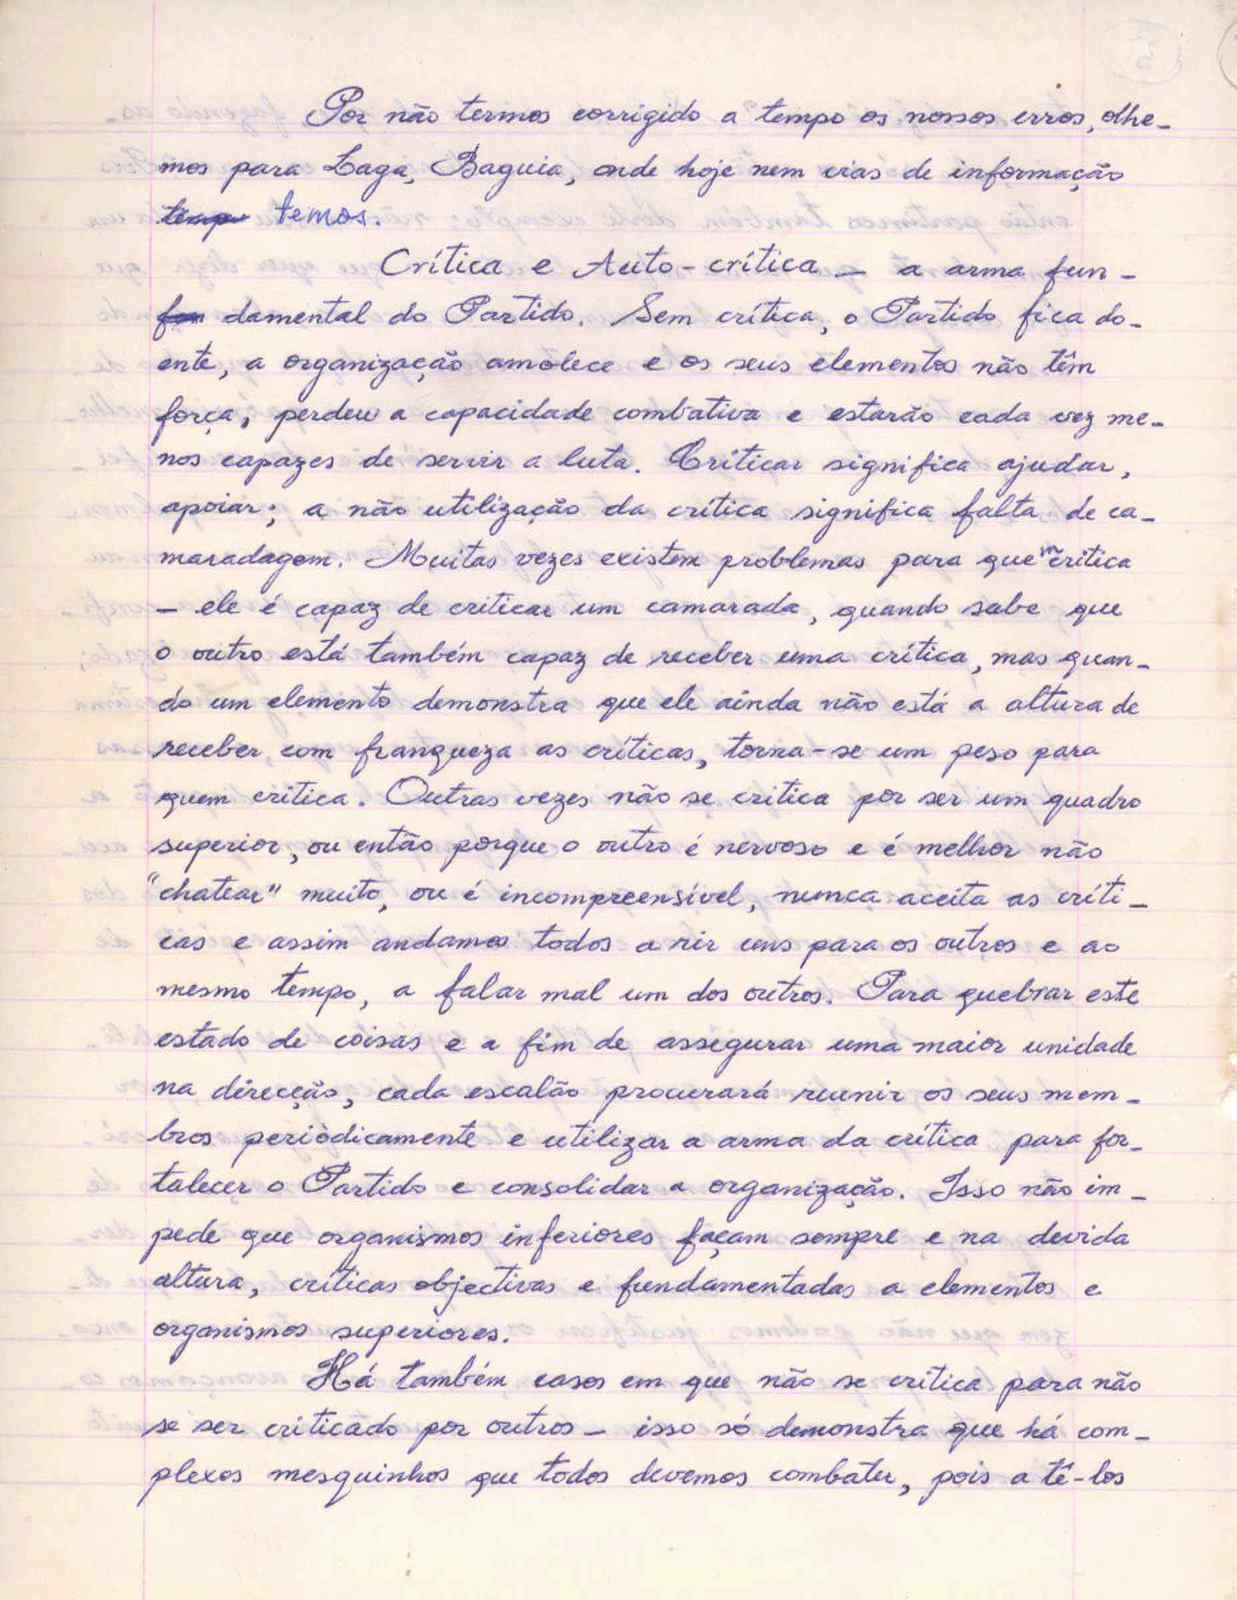 Por não termos corrigido a tempo os nossos erros, olhe-
mos para Laga, Baguia, onde hoje nem vias de informação
temos.
Crítica e Auto-crítica - a arma fun-
damental do Partido. Sem crítica, o Partido fica do-
ente, a organização amolece e os seus elementos não têm
força, perdeu a capacidade combativa e estarão cada vez me-
nos capazes de servir a luta. Criticar significa ajudar,
apoiar; a não utilização da crítica significa falta de ca-
maradagem. Muitas vezes existem problemas para quem critica
- ele é capaz de criticar um camarada, quando sabe que
o outro está também capaz de receber uma crítica, mas quan-
do um elemento demonstra que ele ainda não está a altura de
receber, com franqueza as críticas, torna-se um peso para
quem critica. Outras vezes não se critica por ser um quadro
superior, ou então porque o outro é nervoso e é melhor não
"chatear" muito, ou é incompreensível, nunca aceita as críti-
cas e assim andamos todos a rir uns para os outros e ao
mesmo tempo, a falar mal um dos outros. Para quebrar este
estado de coisas e a fim de assegurar uma maior unidade
na direcção, cada escalão procurará reunir os seus mem-
bros periòdicamente e utilizar a arma da crítica para for-
talecer o Partido e consolidar a organização. Isso não im-
pede que organismos inferiores façam sempre e na devida
altura, críticas objectivas e fundamentadas a elementos e
organismos superiores.
Há também casos em que não se critica para não
se ser criticado por outros - isso só demonstra que há com-
plexos mesquinhos que todos devemos combater, pois a tê-los